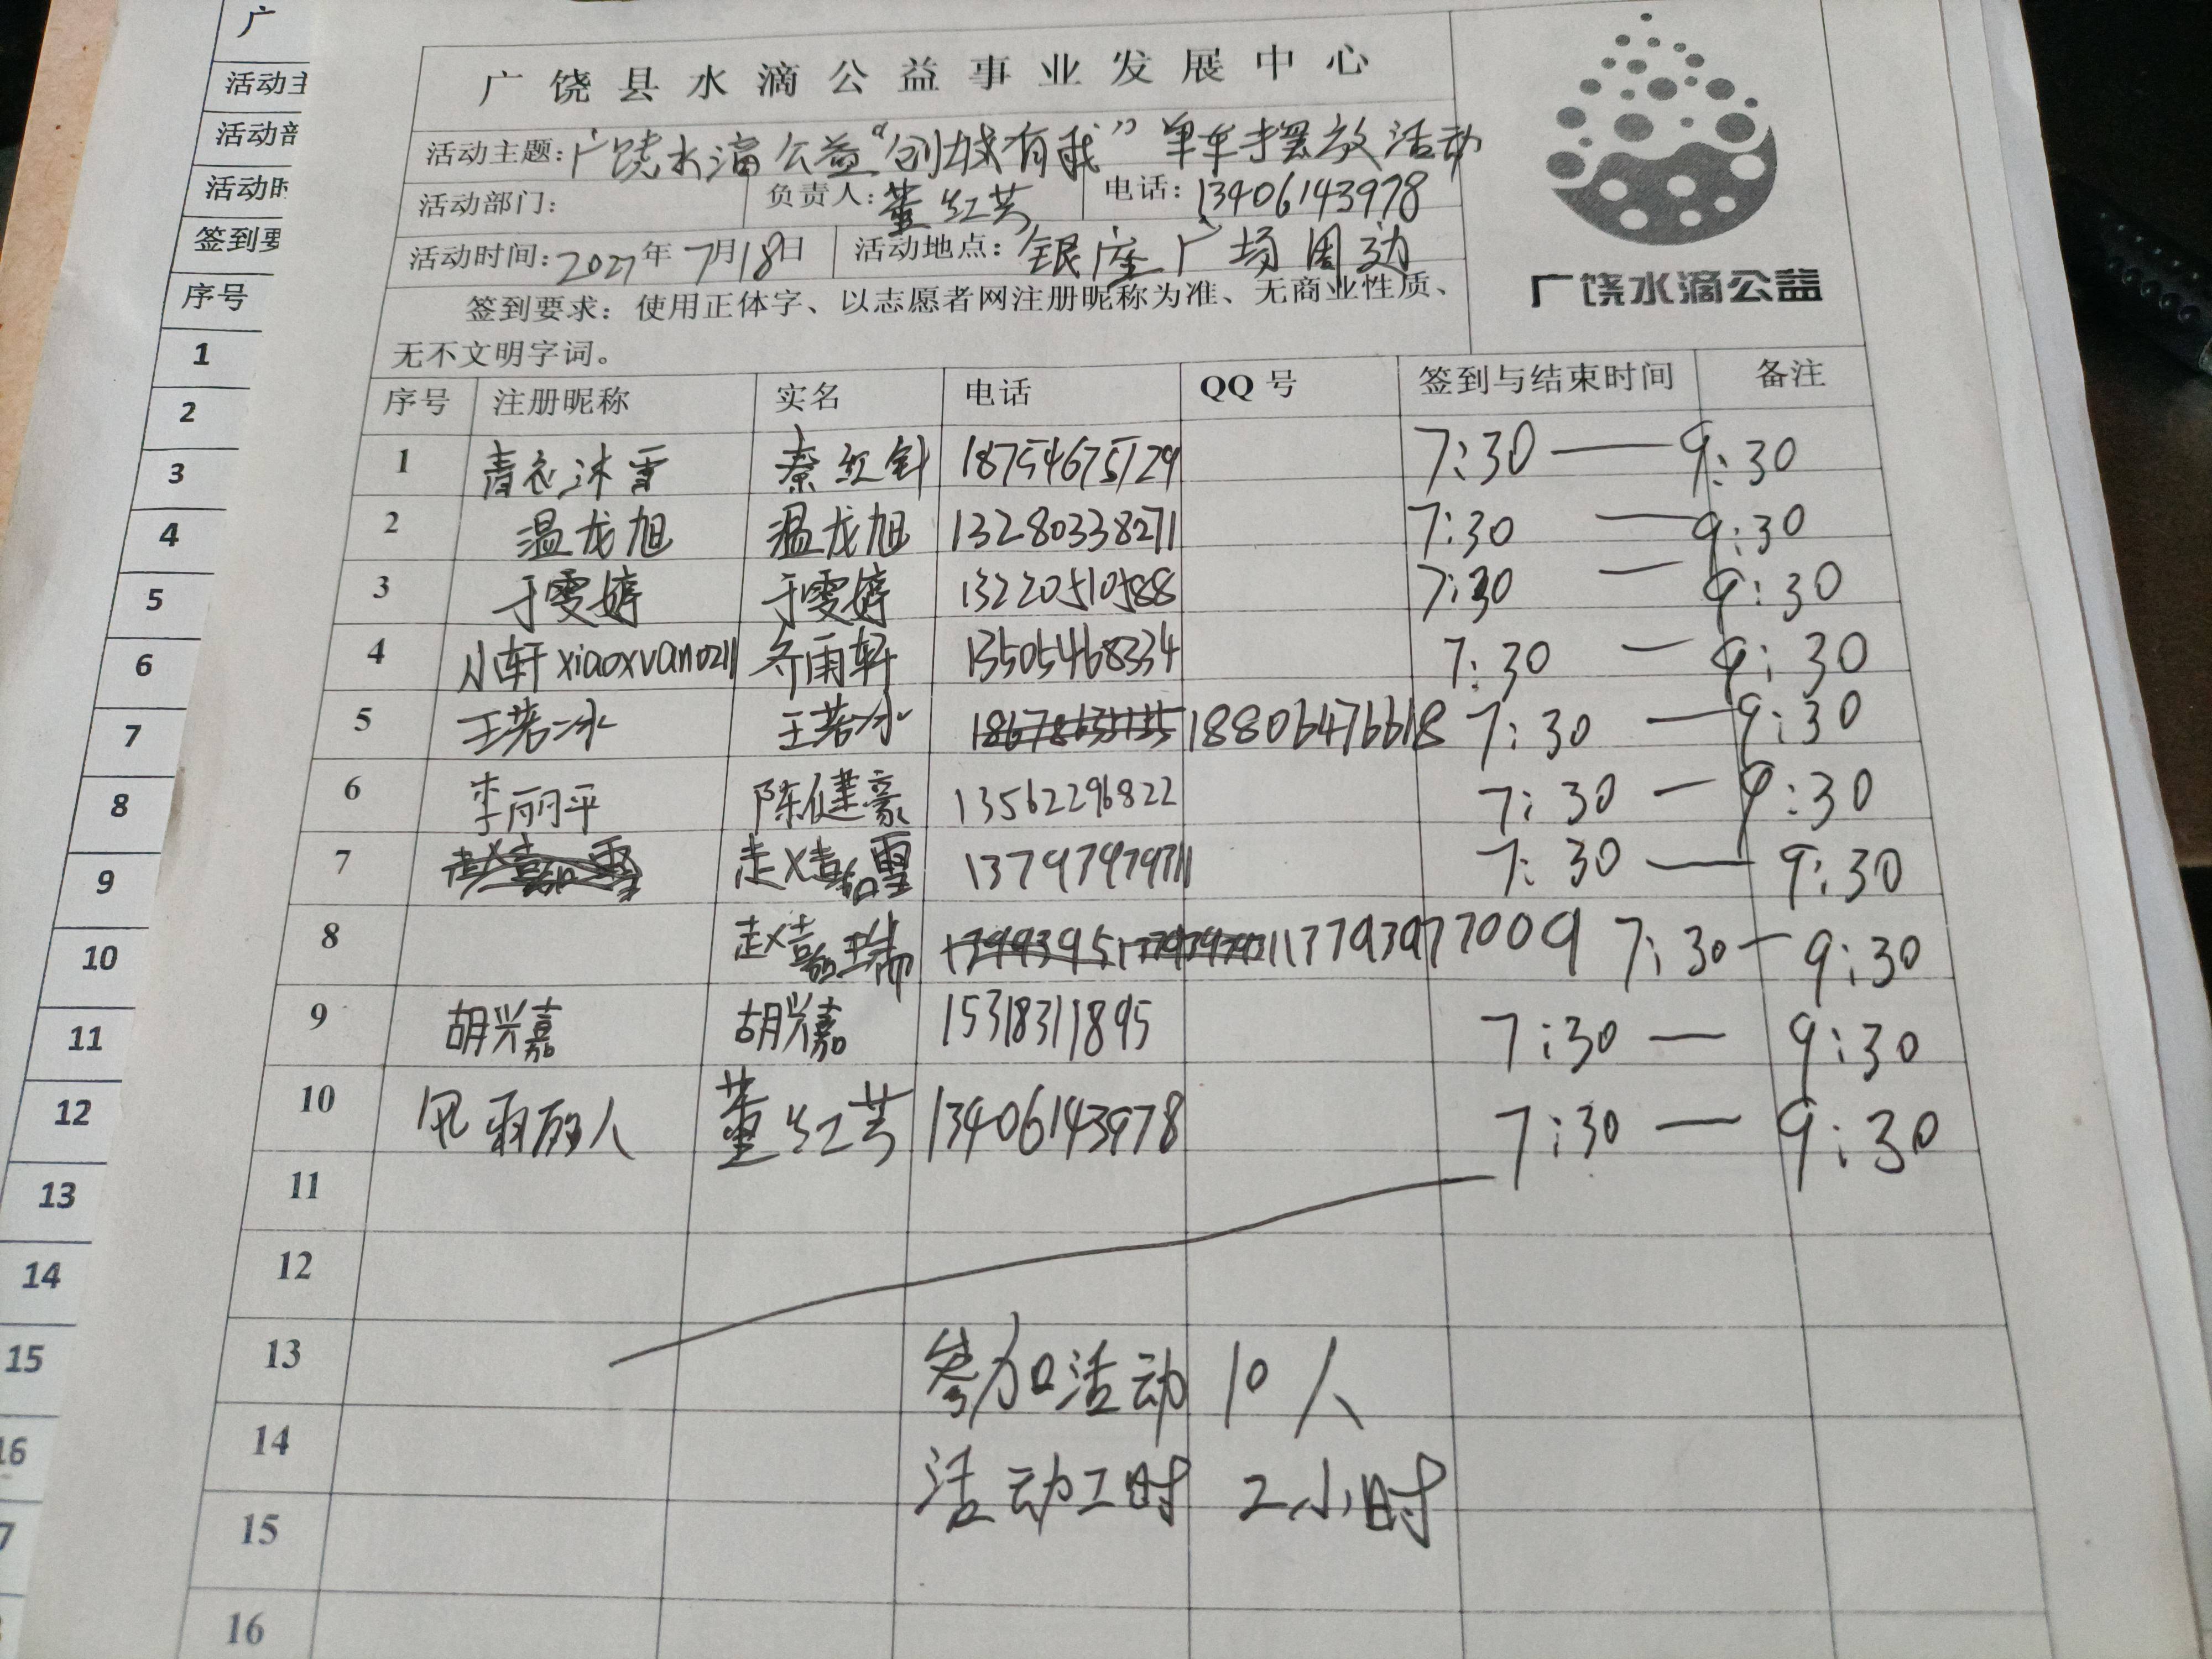 广
活动主
活动部
活动时
签到要
序号
1
2
3
4
5
6
7
8
9
10
11
12
13
14
15
16
7
广饶县水滴公益事业发展中心
活动主题：广饶水滴公益“创城有我”单车摆放活动
活动部门： 负责人：董红芸 电话：13406143978
活动时间：2021年7月18日 活动地点：银座广场周边
签到要求：使用正体字、以志愿者网注册昵称为准、无商业性质、
无不文明字词。
广饶水滴公益
序号 注册昵称 实名 电话 QQ号 签到与结束时间 备注
1 青衣沐雪 秦红针 18754675729 7:30—9:30
2 温龙旭 温龙旭 13280338271 7:30—9:30
3 于雯婷 于雯婷 13220510588 7:30—9:30
4 小轩xiaoxuan0211 雨轩 13505468334 7:30—9:30
5 王若冰 王若冰 18806476618 7:30—9:30
6 李丽平 陈健豪 13562296822 7:30—9:30
7 赵嘉雪 7:30—9:30
8 赵嘉瑞 13793977009 7:30—9:30
9 胡兴嘉 胡兴嘉 15318311895 7:30—9:30
10 风雨的人 董红芸 13406143978 7:30—9:30
11
12
13
参加活动10人
14
活动工时 2小时
15
16